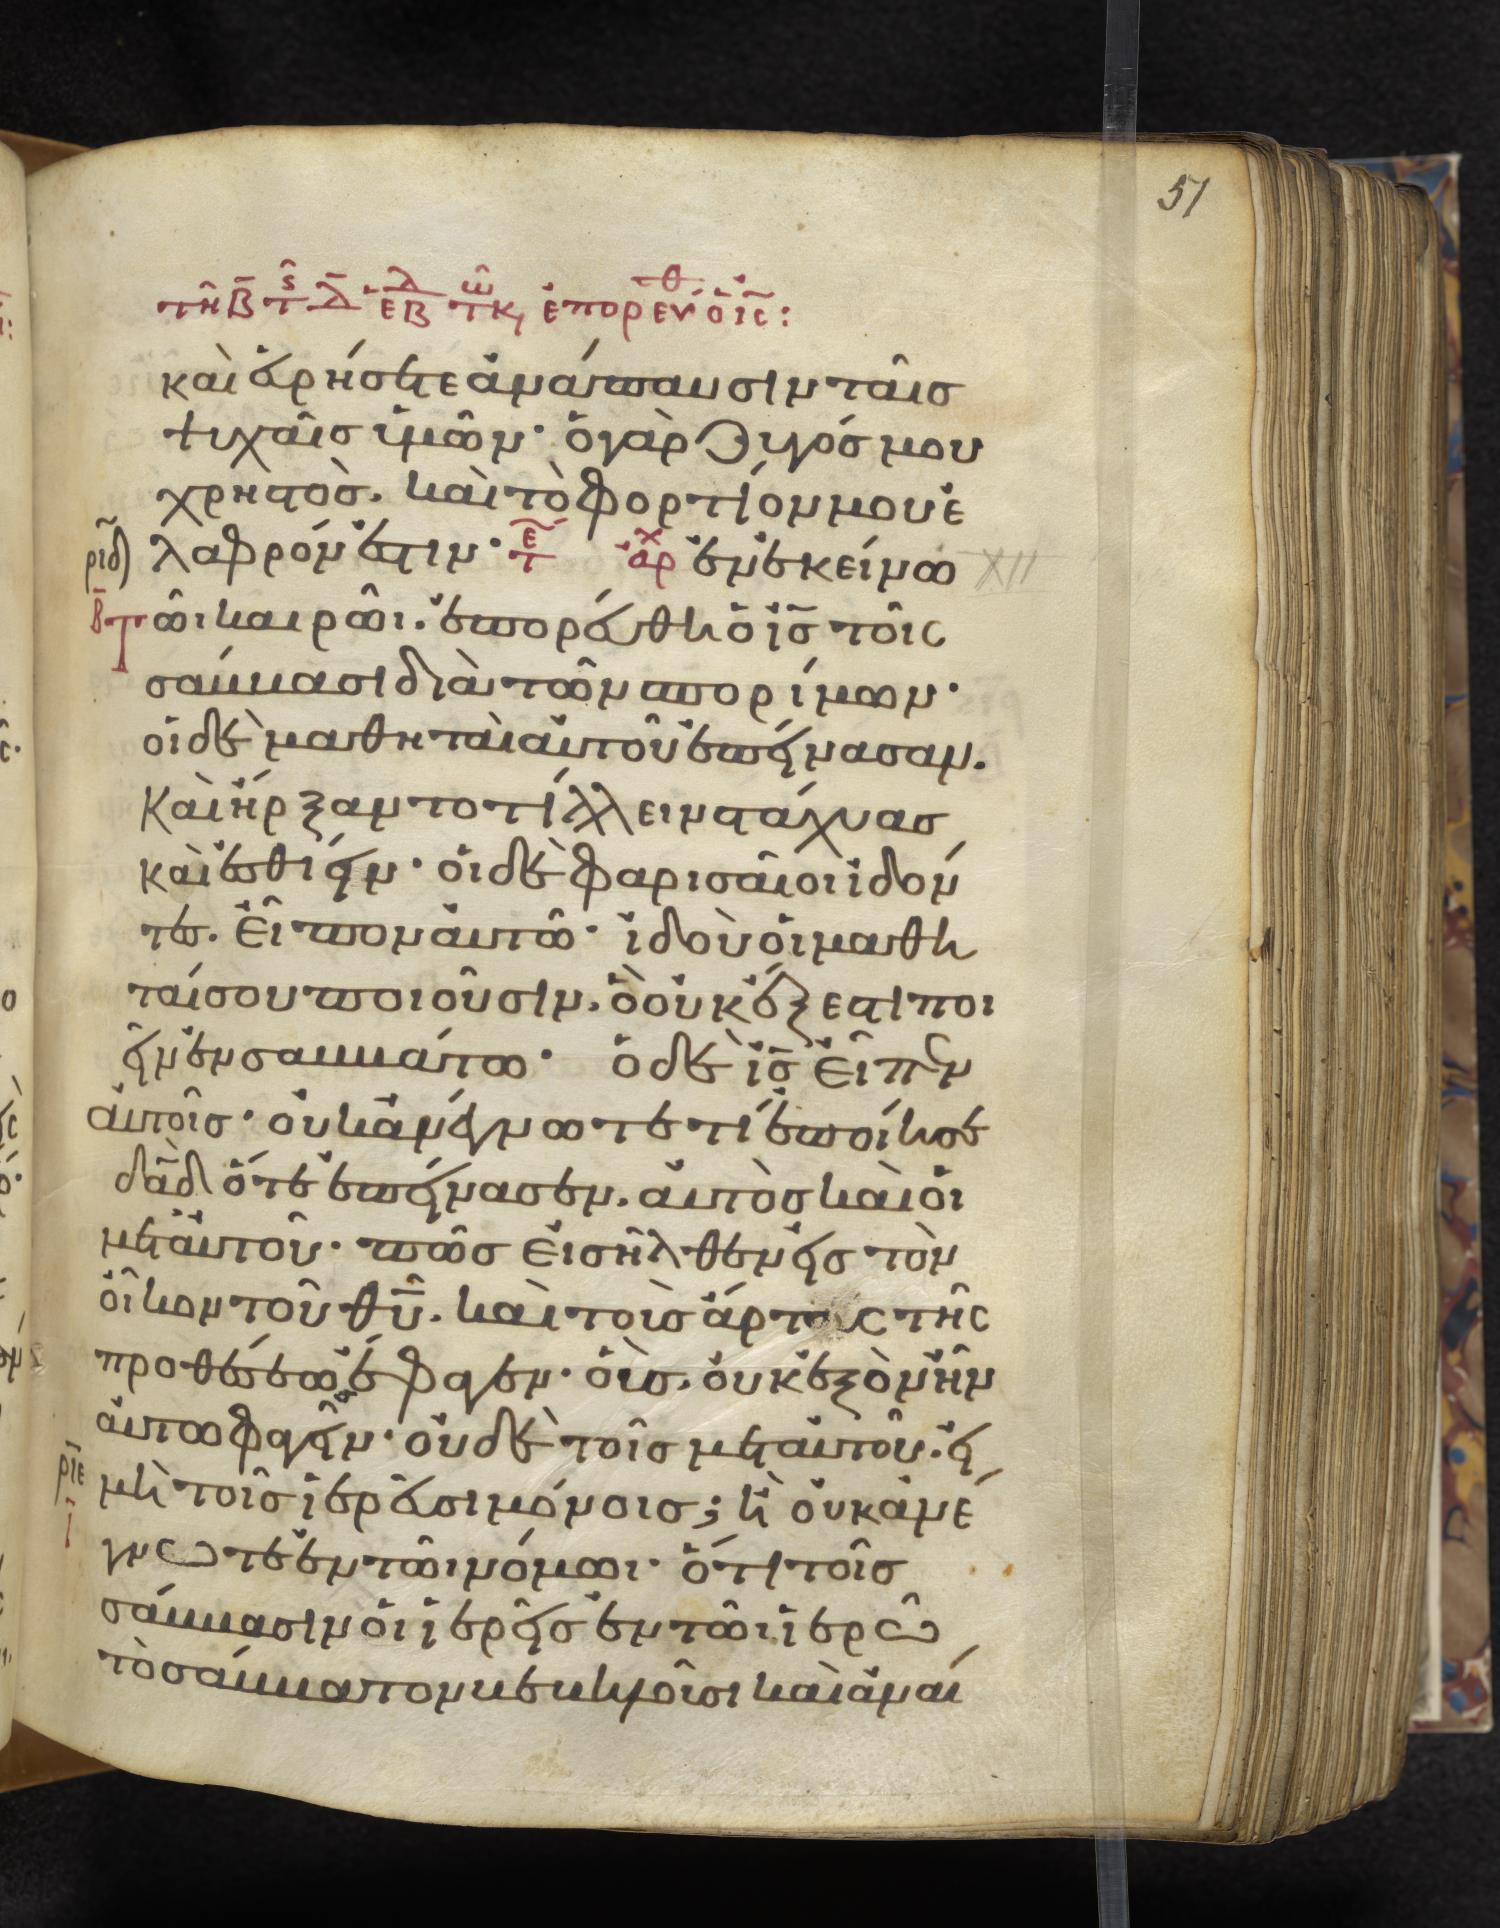 51
τῆ Β τ Δ ἑβ τω κ, ἐπορεύθ ὁ ις:
καὶ εὑρήσετε ἀνάπαυσιν ταῖσ
ψυχαῖσ ὑμῶν· ὁ γὰρ ζυγόσ μου
χρηστὸσ. καὶ τὸ φορτίον μου ἐ
ριδ λαφρόν ἐστιν· τε αρχ ἐν ἐκείνω XII
β τῶι καιρῶι. ἐπορεύθη ὁ ισ τοῖς
σάββασι διὰ τῶν σπορίμων·
οἱ δὲ μαθηταὶ αὐτοῦ ἐπείνασαν.
καὶ ἤρξαντο τίλλειν στάχυας
καὶ ἐσθίειν· οἱ δὲ φαρισαῖοι ἰδόν
τεσ. εἶπον αὐτῶ· ἰδοὺ οἱ μαθη
ταί σου ποιοῦσιν. ὃ οὐκ ἔξεστι ποι
εῖν ἐν σαββάτω· ὁ δὲ ισ εἶπεν
αὐτοῖσ· οὐκ ἀνέγνωτε τί ἐποίησε
δαδ ὅτε ἐπείνασεν. αὐτὸσ καὶ οἱ
μετ αὐτοῦ· πῶσ εἰσῆλθεν εἰσ τὸν
οἶκον τοῦ θυ. καὶ τοὺσ ἄρτους τῆς
προθέσεωσ ἔφαγεν· οὓσ. οὐκ ἐξὸν ἦν
αὐτῶ φαγεῖν· οὐδὲ τοῖσ μετ αὐτοῦ. εἰ
ριε μὴ τοῖσ ἱερεῦσι μόνοισ; ἢ οὐκ ἀνέ
ι γνωτε ἐν τῶι νόμωι· ὅτι τοῖσ
σάββασιν οἱ ἱερεῖσ ἐν τῶι ἱερῶ
τὸ σάββατον βεβηλοῦσι καὶ ἀναί